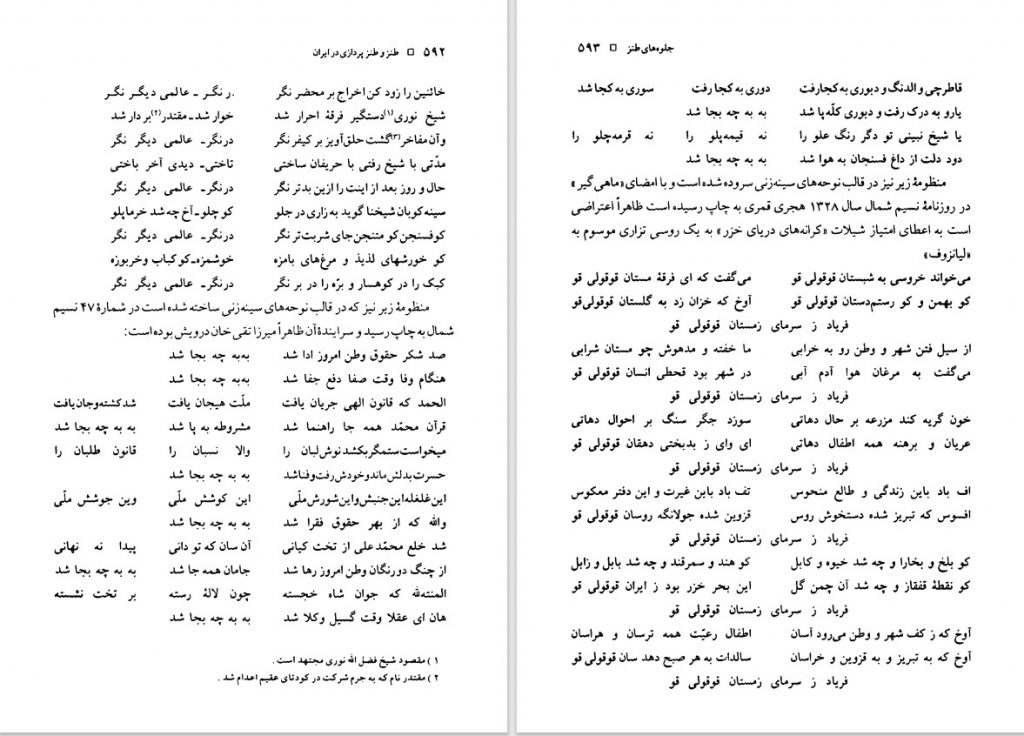 ۵۹۲ □ طنز و طنز پردازی در ایران
خائنین را زود کن اخراج بر محضر نگر ر نگر ـ عالمی دیگر نگر
شیخ نوری(۱)دستگیر فرقهٔ احرار شد خوار شد ـ مقتدر(۲)بر دار شد
وآن مفاخر(۳)گشت حلق‌آویز بر کیفر نگر درنگر ـ عالمی دیگر نگر
مدّتی با شیخ رفتی با حریفان ساختی تاختی ـ دیدی آخر باختی
حال و روز بعد از اینت را ازین بدتر نگر درنگر ـ عالمی دیگر نگر
سینه کوبان شیخنا گوید به زاری در جلو کو چلو ـ آخ چه شد خرماپلو
کو فسنجن کو متنجن جای شربت تر نگر درنگر ـ عالمی دیگر نگر
کو خورشهای لذیذ و مرغ‌های بامزه خوشمزه ـ کو کباب و خربوزه
کبک را در کوهسار و برّه را در بر نگر درنگر ـ عالمی دیگر نگر
منظومهٔ زیر نیز که در قالب نوحه‌های سینه‌زنی ساخته شده است در شمارهٔ ۴۷ نسیم
شمال به چاپ رسید و سرایندهٔ آن ظاهراً میرزا تقی خان درویش بوده است:
صد شکر حقوق وطن امروز ادا شد به‌به چه بجا شد
هنگام وفا وقت صفا دفع جفا شد به‌به چه بجا شد
الحمد که قانون الهی جریان یافت ملّت هیجان یافت شد کشته وجان یافت
قرآن محمّد همه جا راهنما شد مشروطه به پا شد به به چه بجا شد
میخواست ستمگر بکشد نوش لبان را والا نسبان را قانون طلبان را
حسرت بدلش ماند و خودش رفت و فنا شد به به چه بجا شد
این غلغله این جنبش و این شورش ملّی این کوشش ملّی وین جوشش ملّی
والله که از بهر حقوق فقرا شد به به چه بجا شد
شد خلع محمّد علی از تخت کیانی آن سان که تو دانی پیدا نه نهانی
از چنگ دورنگان وطن امروز رها شد جامان همه جا شد به به چه بجا شد
المنته‌لله که جوان شاه خجسته چون لالهٔ رسته بر تخت نشسته
هان ای عقلا وقت گسیل وکلا شد به به چه بجا شد
۱ ) مقصود شیخ فضل الله نوری مجتهد است .
۲ ) مقتدر نام که به جرم شرکت در کودتای عقیم اعدام شد .
جلوه‌های طنز □ ۵۹۳
قاطرچی و الدنگ و دبوری به کجا رفت دوری به کجا رفت سوری به کجا شد
یارو به درک رفت و دبوری کلّه پا شد به به چه بجا شد
یا شیخ نبینی تو دگر رنگ علو را نه قیمه‌پلو را نه قرمه‌چلو را
دود دلت از داغ فسنجان به هوا شد به به چه بجا شد
منظومهٔ زیر نیز در قالب نوحه‌های سینه‌زنی سروده شده است و با امضای «ماهی گیر»
در روزنامهٔ نسیم شمال سال ۱۳۲۸ هجری قمری به چاپ رسیده است ظاهراً اعتراضی
است به اعطای امتیاز شیلات «کرانه‌های دریای خزر» به یک روسی تزاری موسوم به
«لیانزوف»
می‌خواند خروسی به شبستان قوقولی قو می‌گفت که ای فرقهٔ مستان قوقولی قو
کو بهمن و کو رستم‌دستان قوقولی قو آوخ که خزان زد به گلستان قوقولی‌قو
فریاد ز سرمای زمستان قوقولی قو
از سیل فتن شهر و وطن رو به خرابی ما خفته و مدهوش چو مستان شرابی
می‌گفت به مرغان هوا آدم آبی در شهر بود قحطی انسان قوقولی قو
فریاد ز سرمای زمستان قوقولی قو
خون گریه کند مزرعه بر حال دهاتی سوزد جگر سنگ بر احوال دهاتی
عریان و برهنه همه اطفال دهاتی ای وای ز بدبختی دهقان قوقولی قو
فریاد ز سرمای زمستان قوقولی قو
اف باد باین زندگی و طالع منحوس تف باد باین غیرت و این دفتر معکوس
افسوس که تبریز شده دستخوش روس قزوین شده جولانگه روسان قوقولی قو
فریاد ز سرمای زمستان قوقولی قو
کو بلخ و بخارا و چه شد خیوه و کابل کو هند و سمرقند و چه شد بابل و زابل
کو نقطهٔ قفقاز و چه شد آن چمن گل این بحر خزر بود ز ایران قوقولی قو
فریاد ز سرمای زمستان قوقولی قو
آوخ که ز کف شهر و وطن می‌رود آسان اطفال رعیّت همه ترسان و هراسان
آوخ که به تبریز و به قزوین و خراسان سالدات به هر صبح دهد سان قوقولی قو
فریاد ز سرمای زمستان قوقولی قو